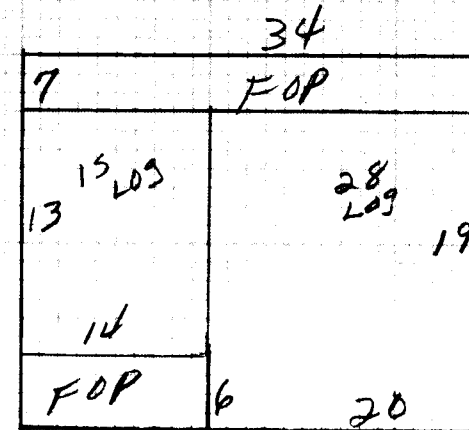 34
7 FOP
1S LOg
28
LOg
13
19
14
FOP 6 20